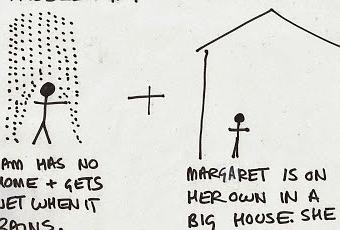 AM HAS NO
OME + GETS
WET WHEN IT
RAINS.
MARGARET IS ON
HER OWN IN A
BIG HOUSE. SHE